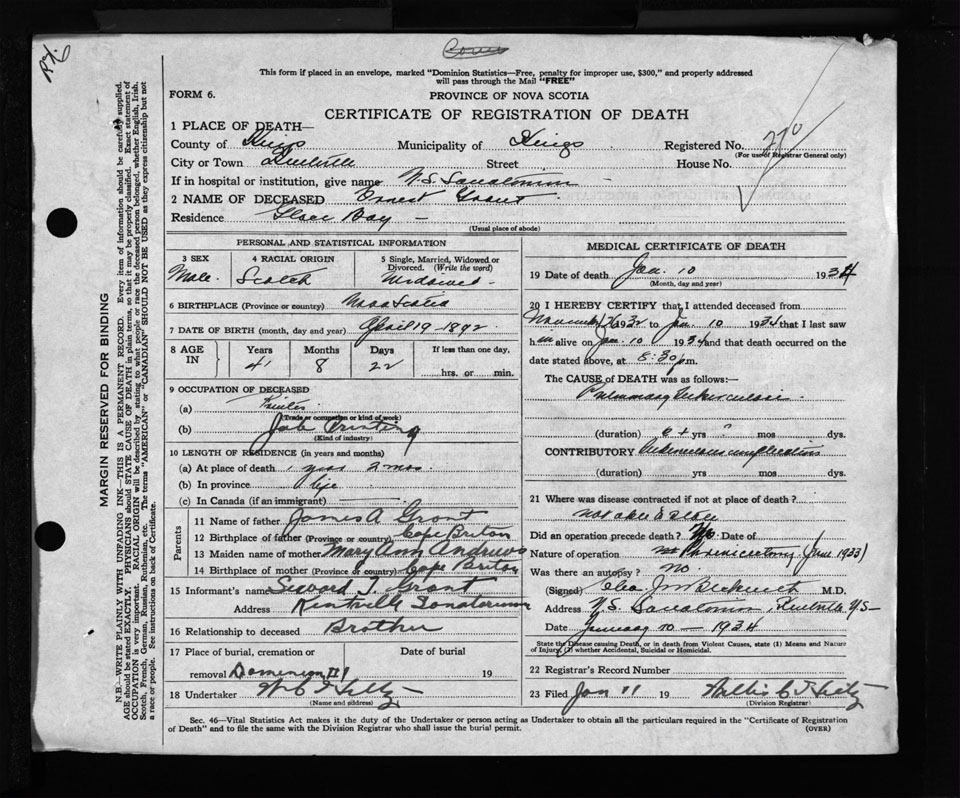 This form if placed in an envelope, marked "Dominion Statistics—Free, penalty for improper use, $300," and properly addressed
will pass through the Mail "FREE"
FORM 6.
PROVINCE OF NOVA SCOTIA
CERTIFICATE OF REGISTRATION OF DEATH
1 PLACE OF DEATH—
County of Kings Municipality of Kings Registered No. 270
(For use of Registrar General only)
City or Town Kentville Street House No.
If in hospital or institution, give name N.S. Sanatorium
2 NAME OF DECEASED Ernest Grant
Residence Glace Bay
(Usual place of abode)
PERSONAL AND STATISTICAL INFORMATION
3 SEX
Male
4 RACIAL ORIGIN
Scotch
5 Single, Married, Widowed or
Divorced. (Write the word)
Widowed
6 BIRTHPLACE (Province or country) Nova Scotia
7 DATE OF BIRTH (month, day and year) April 19 - 1892
8 AGE IN
Years Months Days If less than one day,
41 8 22 hrs. or min.
9 OCCUPATION OF DECEASED
(a) Printer
(Trade or occupation or kind of work)
(b) Job Printing
(Kind of industry)
10 LENGTH OF RESIDENCE (in years and months)
(a) At place of death 1 year 2 mos.
(b) In province Life
(c) In Canada (if an immigrant)
Parents
11 Name of father James A Grant
12 Birthplace of father (Province or country) Cape Briton
13 Maiden name of mother Mary Ann Andrews
14 Birthplace of mother (Province or country) Cape Briton
15 Informant's name T. Grant
Address Kentville Sonatorium
16 Relationship to deceased Brother
17 Place of burial, cremation or Date of burial
removal Dominion #1 19
18 Undertaker
(Name and address)
MEDICAL CERTIFICATE OF DEATH
19 Date of death Jan. 10 1934
(Month, day and year)
20 I HEREBY CERTIFY that I attended deceased from
1932 to Jan. 10 1934 that I last saw
him alive on Jan. 10 1934 and that death occurred on the
date stated above, at 8:30 p.m.
The CAUSE of DEATH was as follows:—
Pulmonary Tuberculosis
(duration) 6 + yrs ? mos dys.
CONTRIBUTORY Tuberculous complications
(duration) yrs mos dys.
21 Where was disease contracted if not at place of death?
not able to state
Did an operation precede death? Date of
Nature of operation Phrenicectomy (June 1933)
Was there an autopsy? no.
(Signed) M.D.
Address N.S. Sanatorium, Kentville N.S.
Date January 10 - 1934
State the Disease causing Death, or in death from Violent Causes, state (1) Means and Nature
of Injury, (2) whether Accidental, Suicidal or Homicidal.
22 Registrar's Record Number
23 Filed Jan 11 19
(Division Registrar)
Sec. 46—Vital Statistics Act makes it the duty of the Undertaker or person acting as Undertaker to obtain all the particulars required in the "Certificate of Registration
of Death" and to file the same with the Division Registrar who shall issue the burial permit.
(OVER)
MARGIN RESERVED FOR BINDING
N.B.—WRITE PLAINLY WITH UNFADING INK—THIS IS A PERMANENT RECORD. Every item of information should be carefully supplied.
AGE should be stated EXACTLY. PHYSICIANS should STATE CAUSE OF DEATH in plain terms, so that it may be properly classified. Exact statement of
OCCUPATION is very important. RACIAL ORIGIN will be described by stating to what people or race the deceased person belonged, whether English, Irish,
Scotch, French, German, Russian, Ruthenian, etc. The terms "AMERICAN" or "CANADIAN" SHOULD NOT BE USED as they express citizenship but not
a race or people. See instructions on back of Certificate.